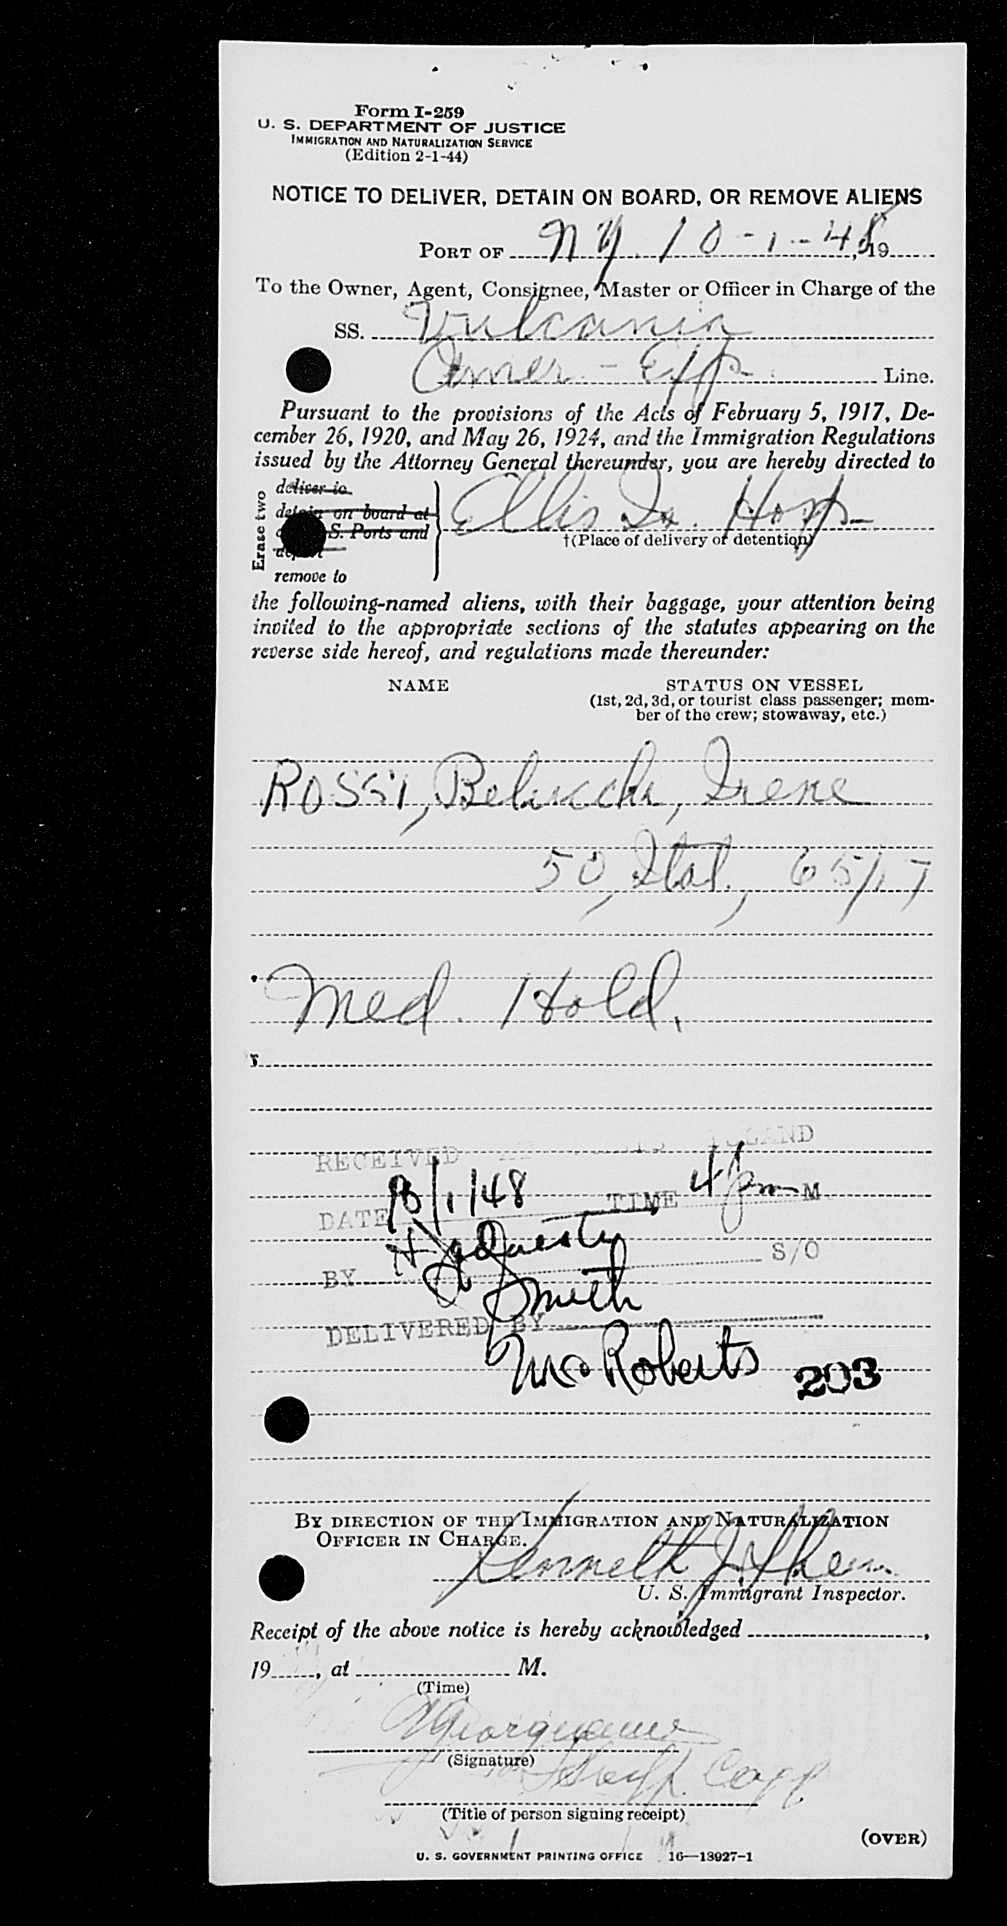 Form I-259
U. S. DEPARTMENT OF JUSTICE
IMMIGRATION AND NATURALIZATION SERVICE
(Edition 2-1-44)
NOTICE TO DELIVER, DETAIN ON BOARD, OR REMOVE ALIENS
PORT OF NY 10-1-48, 19
To the Owner, Agent, Consignee, Master or Officer in Charge of the
SS. Vulcania
Amer-Exp. Line.
Pursuant to the provisions of the Acts of February 5, 1917, De-
cember 26, 1920, and May 26, 1924, and the Immigration Regulations
issued by the Attorney General thereunder, you are hereby directed to
Erase two
deliver to
detain on board at
S. Ports and
remove to
Ellis Is. Hosp
†(Place of delivery or detention)
the following-named aliens, with their baggage, your attention being
invited to the appropriate sections of the statutes appearing on the
reverse side hereof, and regulations made thereunder:
NAME STATUS ON VESSEL
(1st, 2d, 3d, or tourist class passenger; mem-
ber of the crew; stowaway, etc.)
ROSSI, Belucchi, Irene
50, Ital., 65/17
Med. Hold.
RECEIVED AT ELLIS ISLAND
DATE 10/1/48 TIME 4 pm M
BY S/O
Smith
DELIVERED BY
McRoberts 203
BY DIRECTION OF THE IMMIGRATION AND NATURALIZATION
OFFICER IN CHARGE.
Kenneth J.
U. S. Immigrant Inspector.
Receipt of the above notice is hereby acknowledged ,
19 , at M.
(Time)
(Signature)
(Title of person signing receipt)
(OVER)
U. S. GOVERNMENT PRINTING OFFICE 16—13927-1